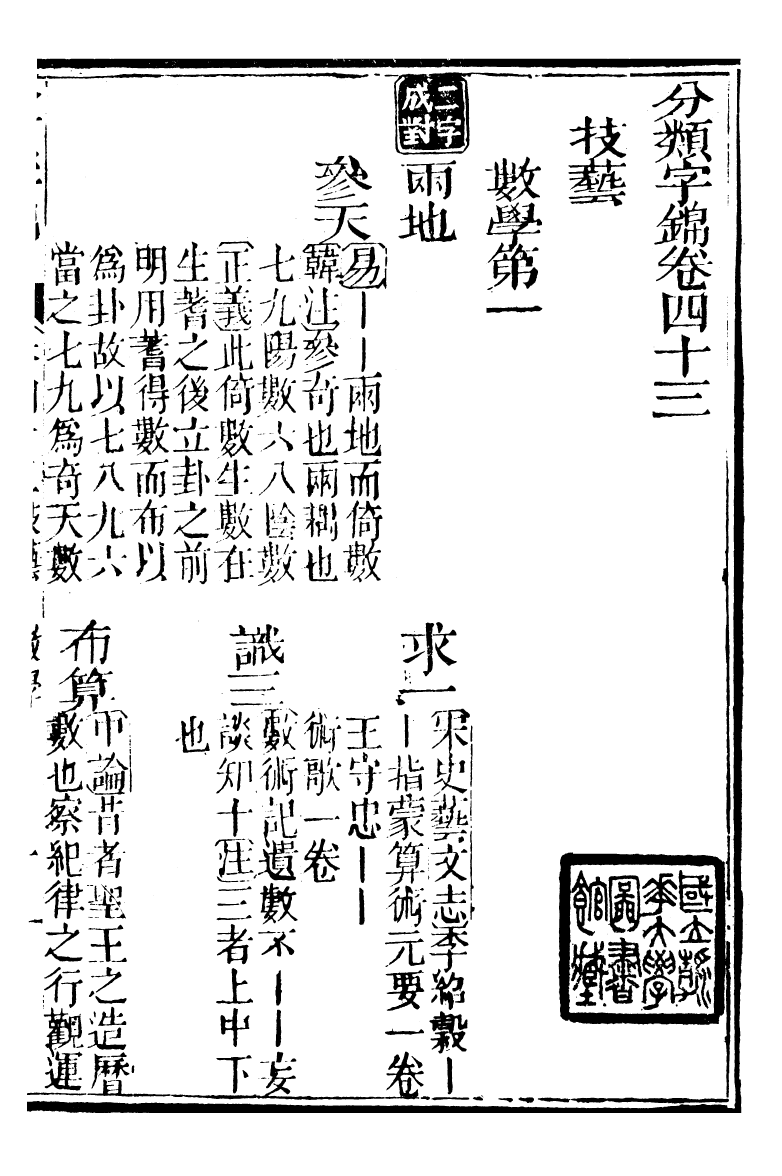 分類字錦卷四十三
技藝
數學第一
二字成對
兩地
參天
易｜｜兩地而倚數
韓注參奇也兩耦也
七九陽數六八陰數
正義此倚數生數在
生蓍之後立卦之前
明用蓍得數而布以
爲卦故以七八九六
當之七九爲奇天數
求一
宋史藝文志李紹穀｜
｜指蒙算術元要一卷
王守忠｜｜
術歌一卷
識三
數術記遺數不｜｜妄
談知十注三者上中下
也
布算
中論昔者聖王之造曆
數也察紀律之行觀運
國立清華大學圖書館藏